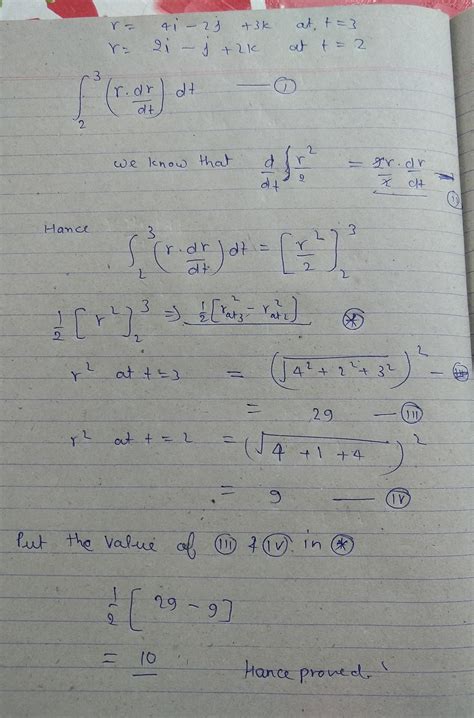 r = 4i - 2j + 3k at, t = 3
r = 2i - j + 2k at t = 2
∫₂³ (r · dr/dt) dt — (i)
we know that d/dt { r²/2 = 2r/2 · dr/dt — (ii)
Hance
∫₂³ (r · dr/dt) dt = [r²/2]₂³
1/2 [r²]₂³ ⇒ 1/2 [r²at3 - r²at2] (*)
r² at t = 3 = (√4² + 2² + 3²)² —
= 29 — (iii)
r² at t = 2 = (√4 + 1 + 4)²
= 9 — (iv)
Put the value of (iii) & (iv) in (*)
1/2 [29 - 9]
= 10 Hance proved.